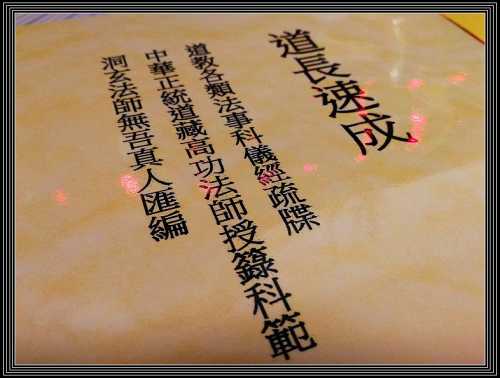 道長速成
道教各類法事科儀經疏牒
中華正統道藏高功法師授籙科範
洞玄法師無吾真人匯編